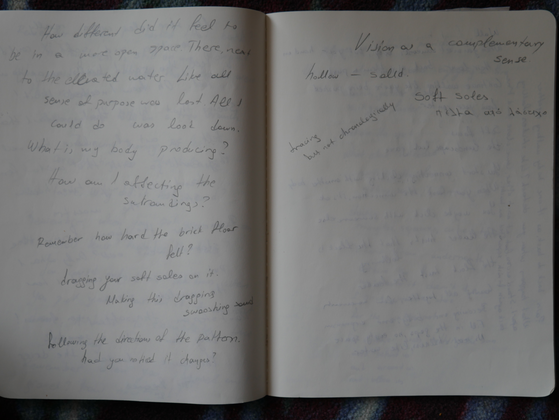 How different did it feel to
be in a more open space There, next
to the elevated water. Like all
sense of purpose was lost All I
could do was look down.
What is my body producing?
How am I affecting the
surroundings?
Remember how hard the brick floor
felt?
dragging your soft soles on it.
Making this dragging
swooshing sound
Following the direction of the pattern.
had you noticed it changes?
Vision as a complementary
sense
hollow – solid
soft soles
tracing
but not chronologically